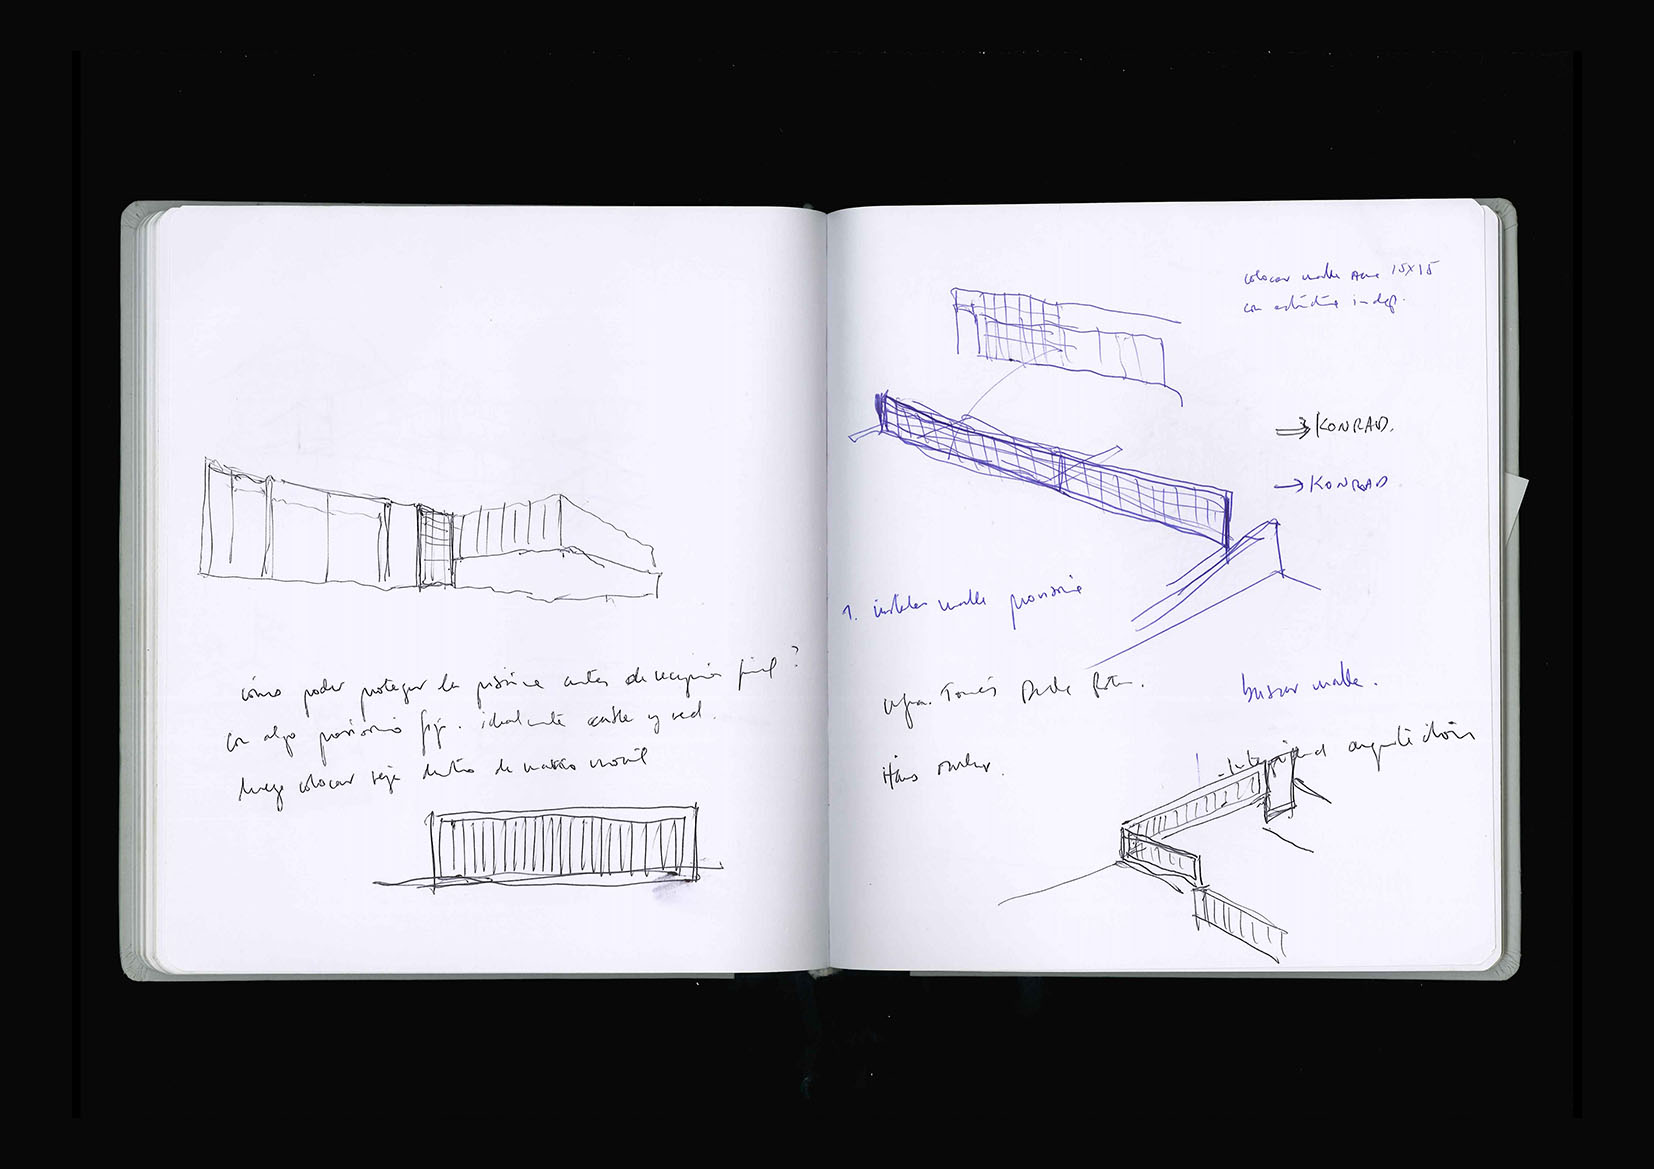 cómo poder proteger la piscina antes de recepción final?
con algo provisorio fijo. idealmente cable y red.
luego colocar reja dentro de marco móvil
colocar malla Acma 15x15
con estructura indep.
⇒ KONRAD.
→ KONRAD
1. instalar malla provisoria
Tomás
buscar malla.
Hans